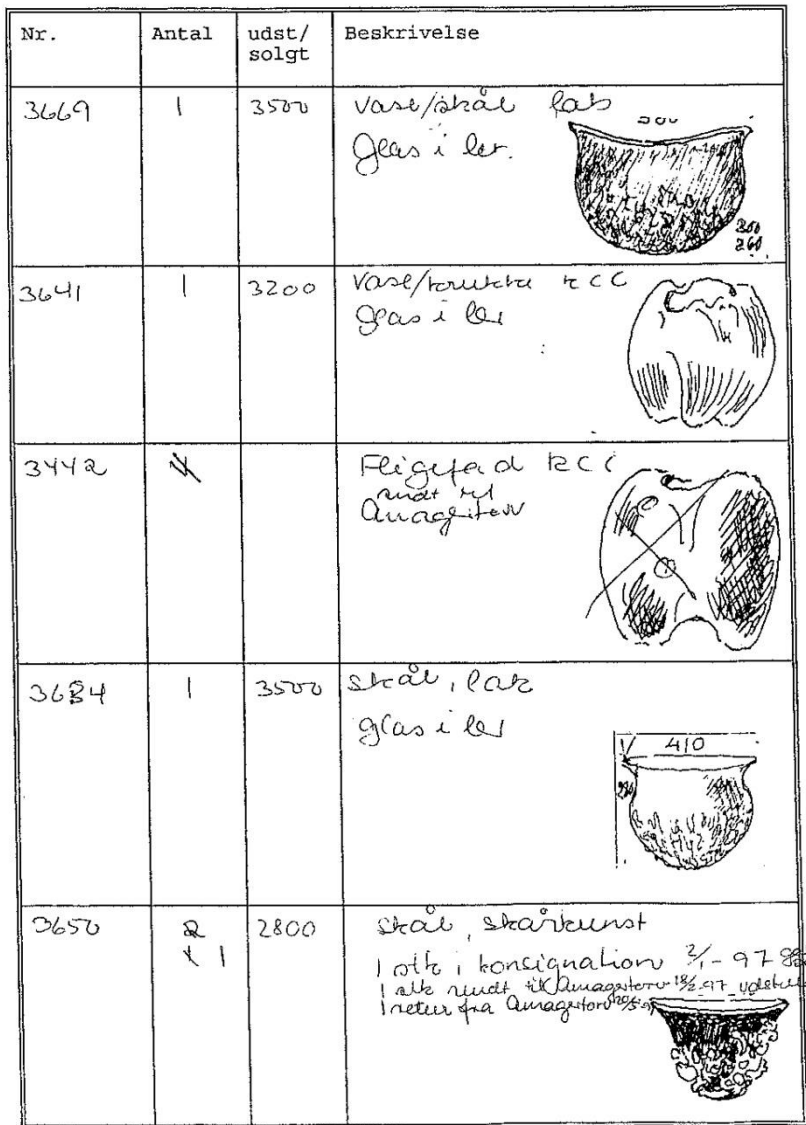 Nr. Antal udst/ Beskrivelse
solgt
3669 1 3500 Vase/skål lak
Glas i ler.
300
260
3641 1 3200 Vase/krukke RCC
glas i ler
3442 Fligefad RCC
sendt til
Amagertorv
3634 1 3500 skål, lak
glas i ler
410
3650 2 2800 skål, skårkunst
1 1 stk i konsignation 2/1-97
1 stk sendt til Amagertorv 18/2-97
1 retur fra Amagertorv